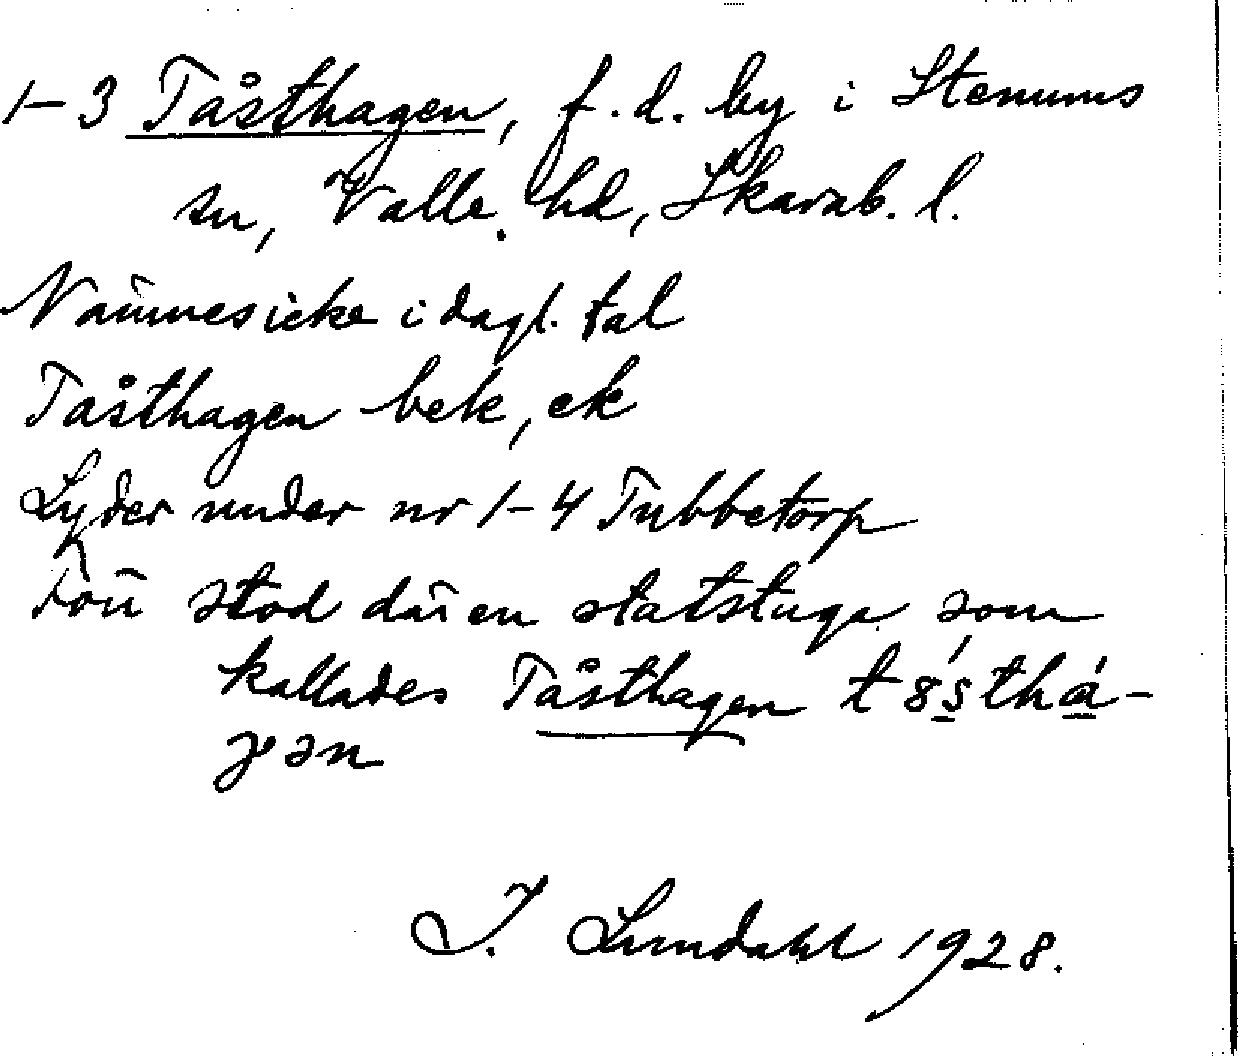 1–3 Tåsthagen, f.d. by i Stenums
sn, Valle hd, Skarab. l.
Nämnes icke i dagl. tal
Tåsthagen bek, ek
Lyder under nr 1–4 Tubbetorp
Förr stod där en statstuga som
kallades Tåsthagen t8́sthá-
gən
I. Lundahl 1928.